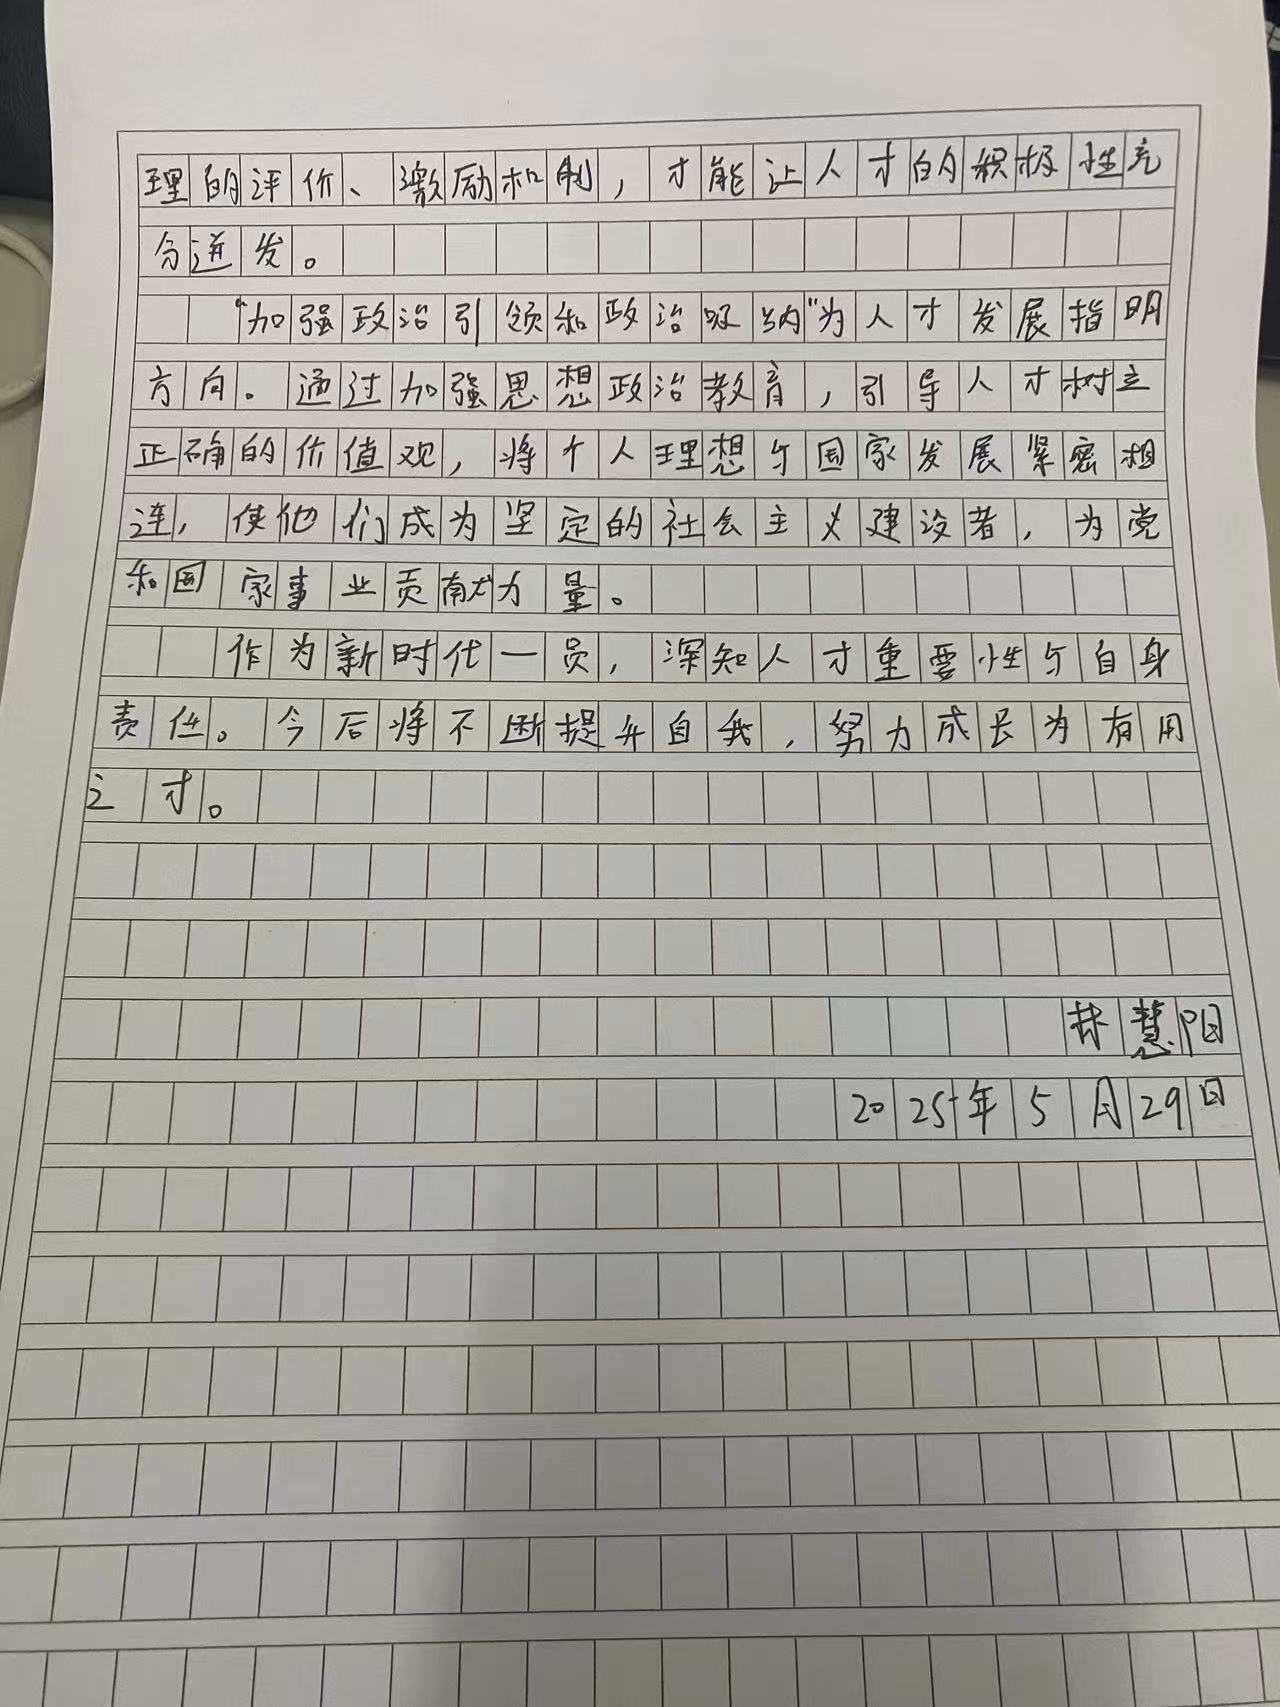 理的评价、激励和制，才能让人才的积极性充
分迸发。
“加强政治引领和政治吸纳”为人才发展指明
方向。通过加强思想政治教育，引导人才树立
正确的价值观，将个人理想与国家发展紧密相
连，使他们成为坚定的社会主义建设者，为党
和国家事业贡献力量。
作为新时代一员，深知人才重要性与自身
责任。今后将不断提升自我，努力成长为有用
之才。
林慧阳
2025年5月29日